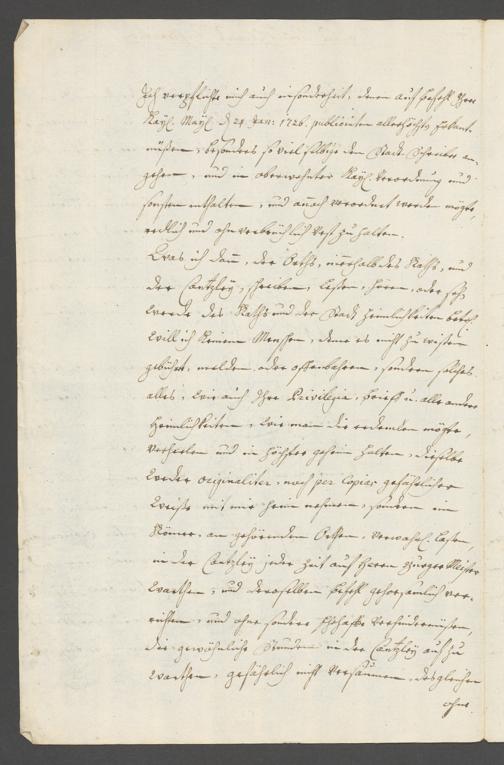 Ich verpflichte mich auch insonderheit, denen auf Befehl Ihro
Kayl. Mayt. d. 24. Jan: 1726. publicirten allerhöchsten
besonders so viel selbige den Stadt-Schreiber an-
gehen, und in oberwehnter Kayl. Verordnung und
sonsten enthalten, und annoch verordnet werden möchte,
redlich und ohnverbrüchlich vest zu halten.
Was ich dann, der Orths, innerhalb des Raths, und
der Cantzley, schreiben, lesen, hören, oder sehen
werde des Raths und der Stadt Heimlichkeiten
will ich keinem Menschen, deme es nicht zu wissen
gebühret, melden oder offenbahren, sondern solches
alles, wie auch Ihre Privilegia, Brieff u. alle andere
Heimlichkeiten, wie man die erdencken möchte,
verhelen und in höchster geheim halten, dieselbe
weder originaliter, noch per Copias gefährlicher
Weise mit mir heim nehmen, sondern
an gehörenden Orthen, verwahrl. lassen,
in der Cantzley jeder Zeit auf Herrn Burger Meister
warthen, und deroselben Befehl gehorsamlich ver-
richten, und ohne sondere Ehehaffte Verhindernissen,
die gewöhnliche Stunden in der Cantzley auf zu
warthen, gefährlich nicht versäumen, desgleichen
ohne